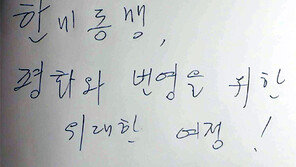 한미동맹,
평화와 번영을 위한
위대한 여정!